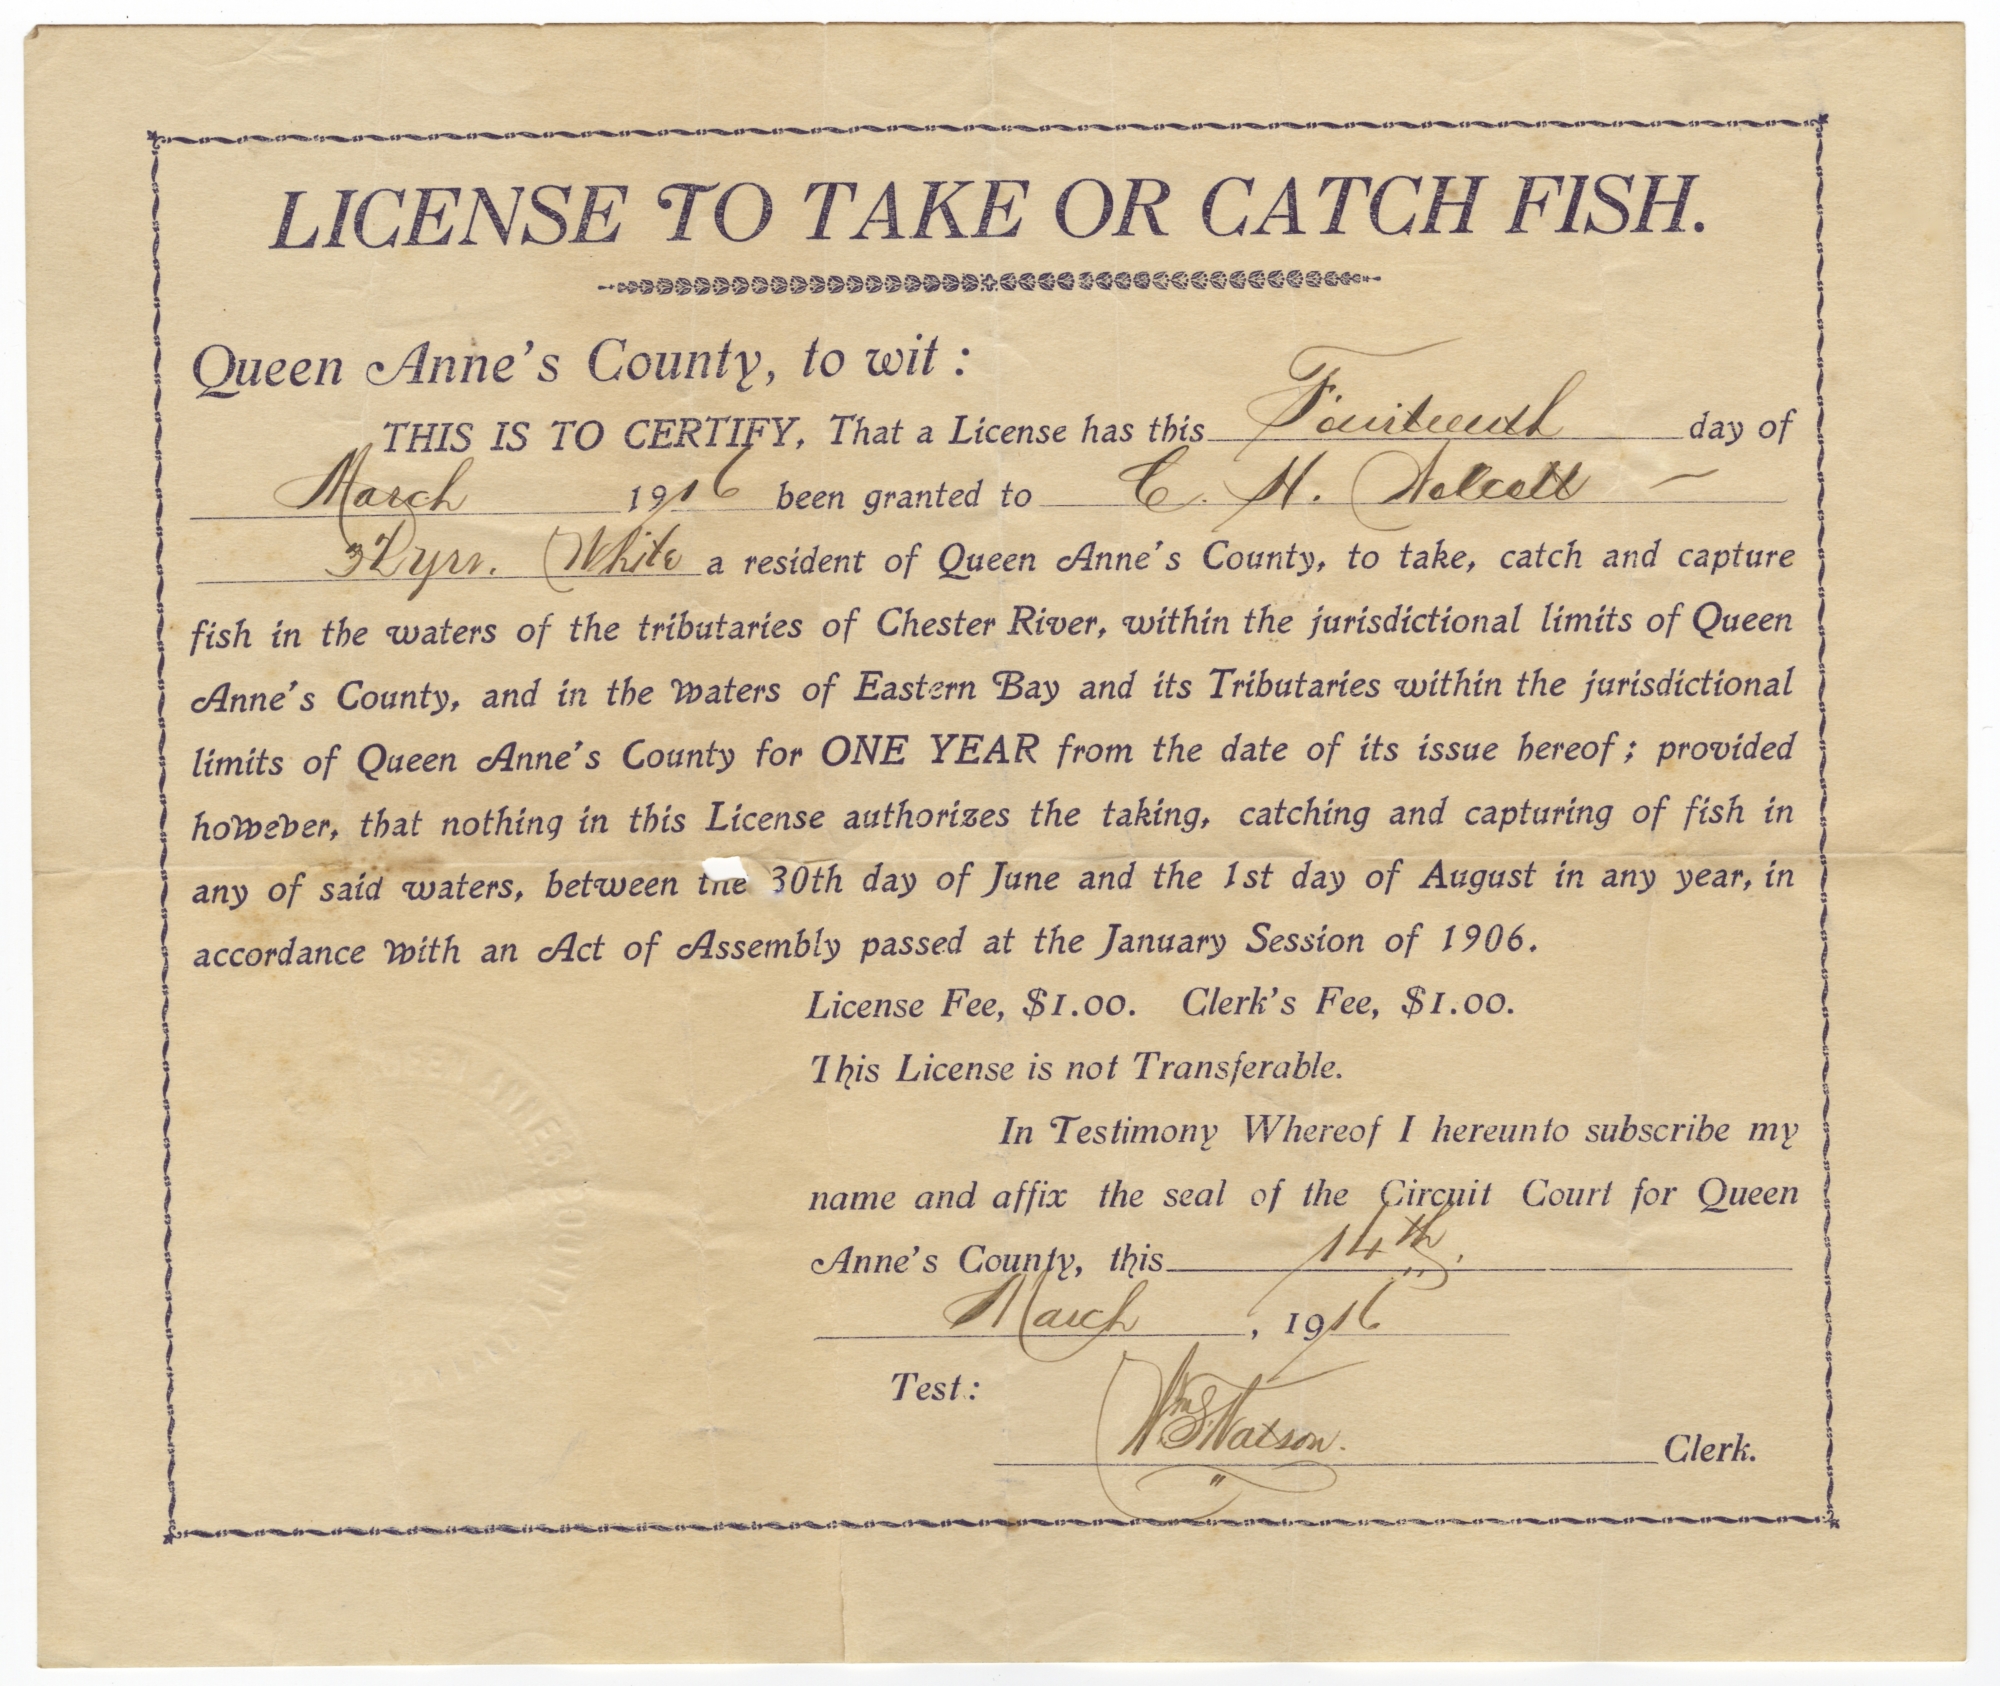 LICENSE TO TAKE OR CATCH FISH.
Queen Anne's County, to wit :
THIS IS TO CERTIFY, That a License has this Fourteenth day of
March 1916 been granted to C. H.
32 yrs. White a resident of Queen Anne's County, to take, catch and capture
fish in the waters of the tributaries of Chester River, within the jurisdictional limits of Queen
Anne's County, and in the waters of Eastern Bay and its Tributaries within the jurisdictional
limits of Queen Anne's County for ONE YEAR from the date of its issue hereof ; provided
however, that nothing in this License authorizes the taking, catching and capturing of fish in
any of said waters, between the 30th day of June and the 1st day of August in any year, in
accordance with an Act of Assembly passed at the January Session of 1906.
License Fee, $1.00. Clerk's Fee, $1.00.
This License is not Transferable.
In Testimony Whereof I hereunto subscribe my
name and affix the seal of the Circuit Court for Queen
Anne's County, this 14th.
March , 1916
Test:
Wm S. Watson.
Clerk.
ANNES COUNTY